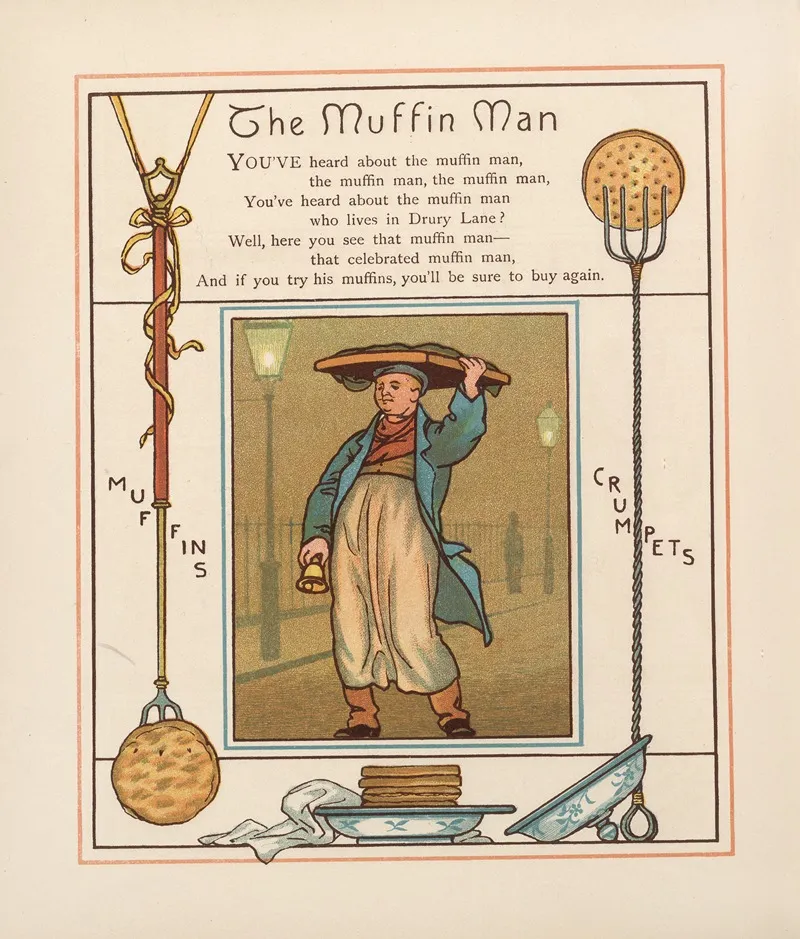 The Muffin Man
YOU'VE heard about the muffin man,
the muffin man, the muffin man,
You've heard about the muffin man
who lives in Drury Lane?
Well, here you see that muffin man—
that celebrated muffin man,
And if you try his muffins, you'll be sure to buy again.
MUFFINS
CRUMPETS